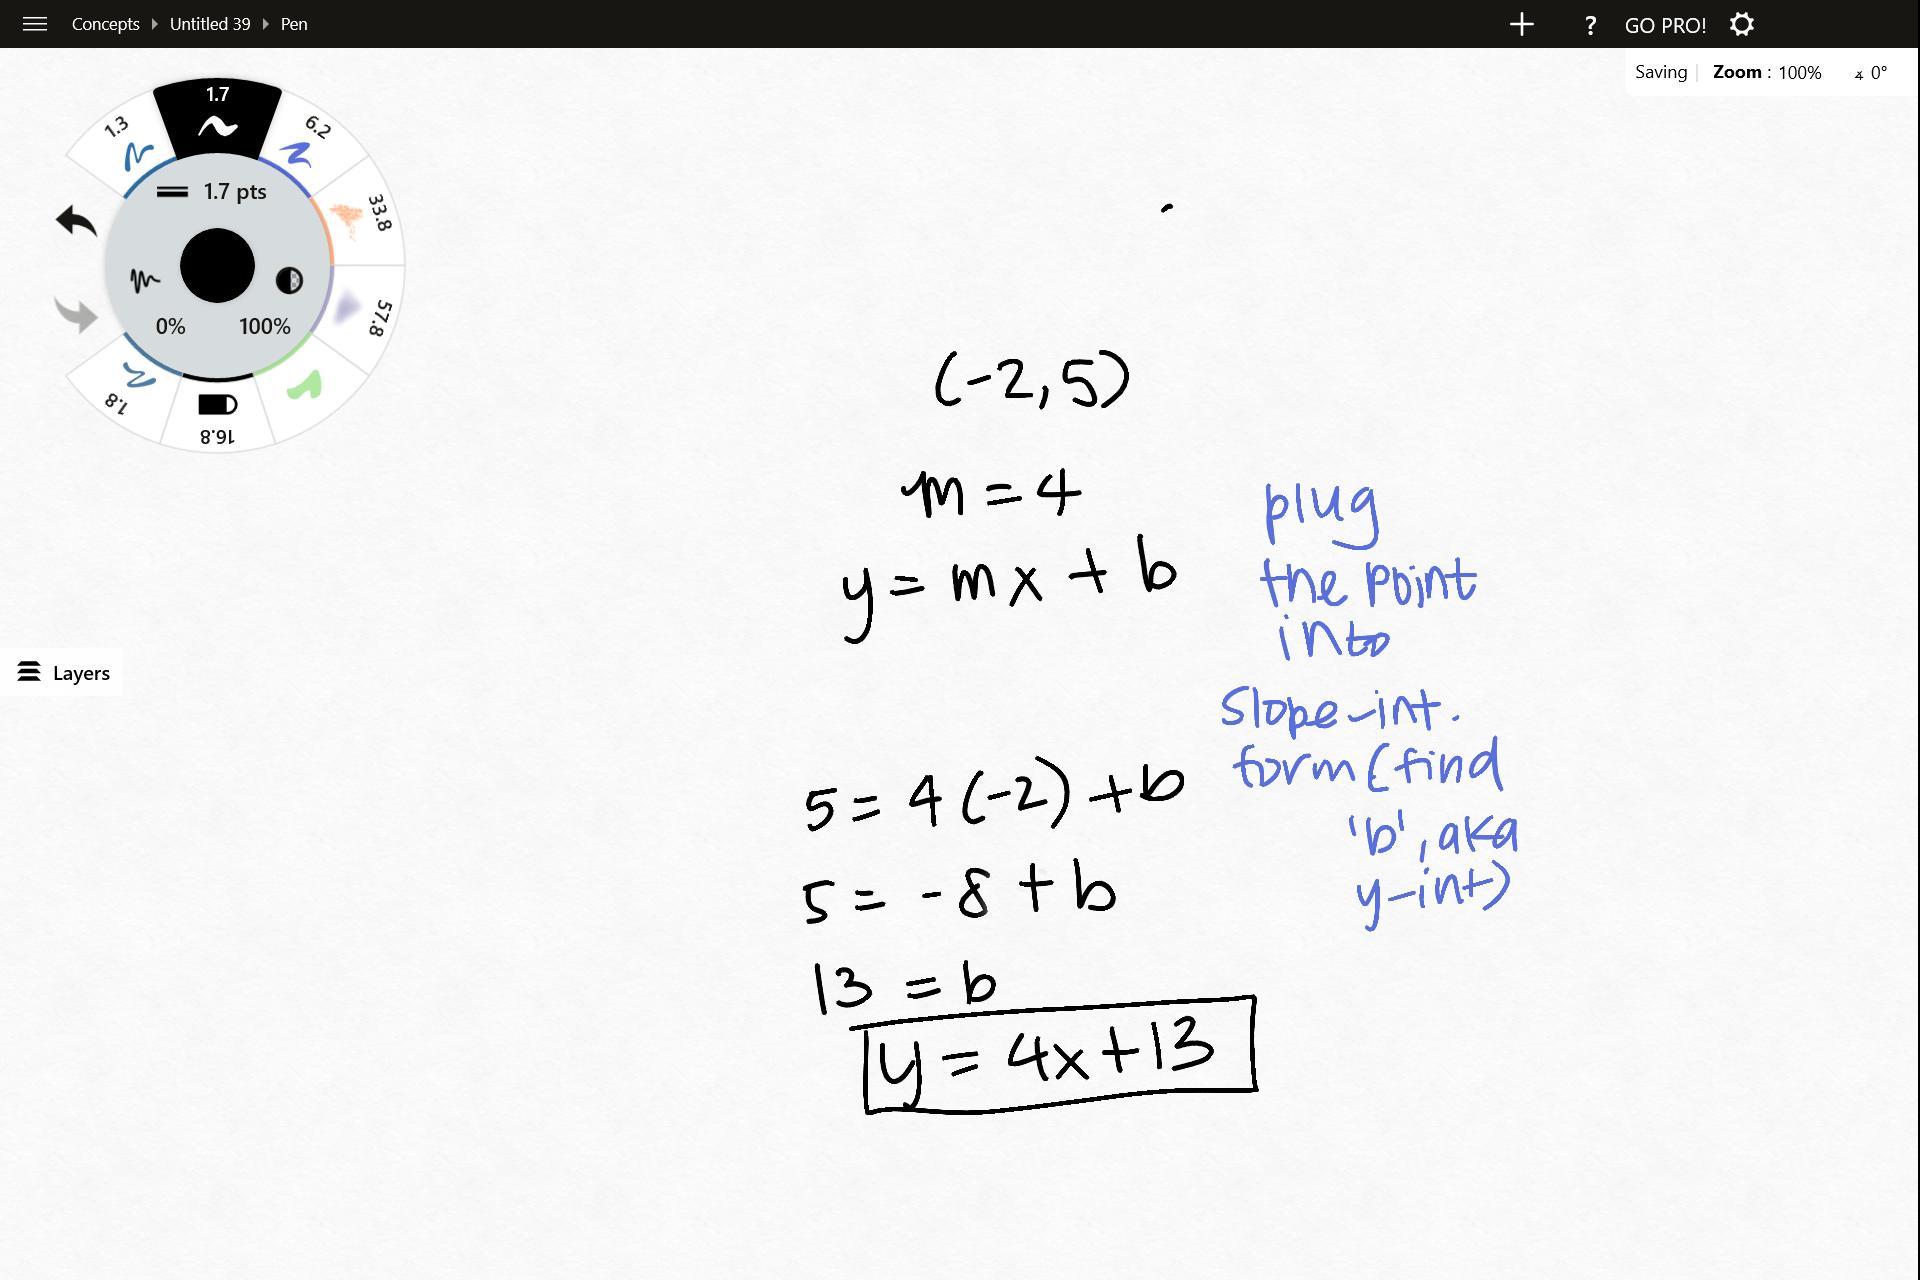 Concepts Untitled 39 Pen
? GO PRO!
Saving Zoom : 100% 0°
1.3
1.7
6.2
1.7 pts
33.8
57.8
0% 100%
1.8
16.8
Layers
(-2,5)
m = 4
y = mx + b
5 = 4(-2) + b
5 = -8 + b
13 = b
y = 4x+13
plug
the point
into
slope-int.
form (find
'b', aka
y-int)